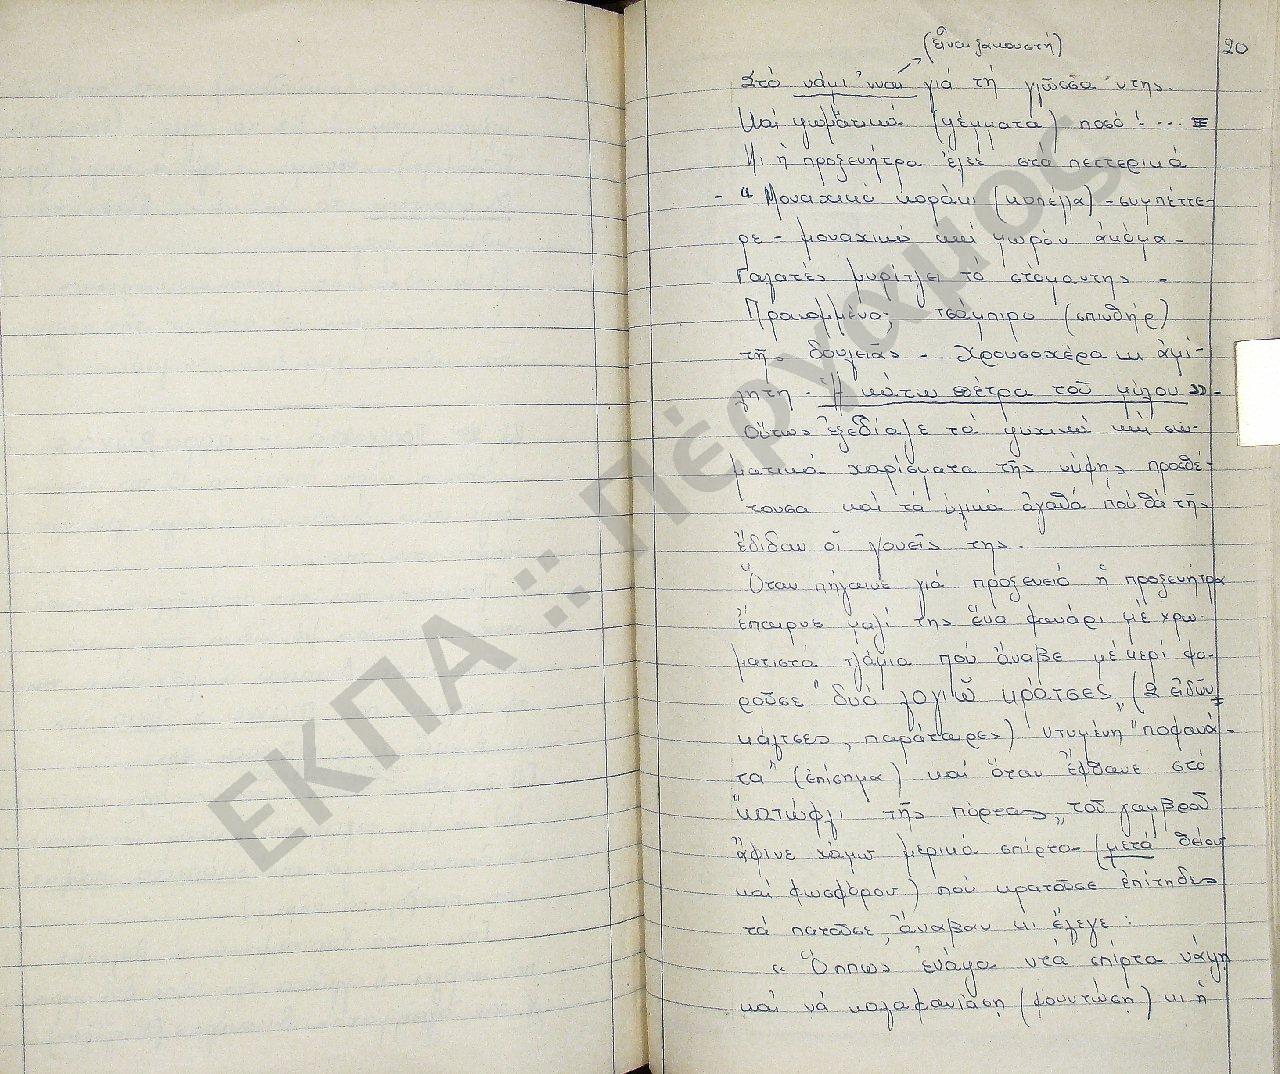 (εἶναι ξακουστή)
20
Στὸ νάμι 'ναί γιὰ τῆ γλῶσσα 'ντης.
Καὶ ψωμάτικα (γέμματα) ποσό! ...
Κι ἡ προξενήτρα ἔλεε στὰ πεττερικά
- "Μοναχικό κοράκι (κοπέλλα) - συμπέττε-
ρε - μοναχικό καὶ μωρόν ἀκόμα -
Γαλατές μυρίτζει τὸ στόμαντης -
Προκομμένο, τσάμπιρο (σπινθήρ)
τῆς δουλειᾶς - Χρουσοχέρα κι ἀμί-
λητη - Ἡ κάτω πέτρα τοῦ μύλου" -
Οὕτως ἐξεδίαζε τὰ ψυχικά καὶ σω-
ματικά χαρίσματα τῆς νύφης προσθέ-
τουσα καὶ τὰ ὑλικά ἀγαθά ποὺ θὰ τῆς
ἔδιδαν οἱ γονεῖς της.
Ὅταν πήγαινε γιὰ προξενειό ἡ προξενήτρα
ἔπαιρνε μαζί της ἕνα φανάρι μὲ χρω-
ματιστά τζάμια ποὺ ἄναβε μὲ κερί φο-
ροῦσε "δυὸ λογιῶ κράτσες" (2 εἰδῶν
κάλτσες, παράταιρες) ντυμένη "ποφανά-
τα" (ἐπίσημα) καὶ ὅταν ἔφθανε στὸ
"κατώφλι τῆς πόρτας" τοῦ γαμβροῦ
ἄφινε χάμω μερικά σπίρτα (μετὰ θείου
καὶ φωσφόρου) ποὺ κρατοῦσε ἐπίτηδες
τὰ πατοῦσε, ἄναβαν κι ἔλεγε:
"Ὅπως ἐνάψα ντὰ σπίρτα νάψη
καὶ νὰ καλαφανιάση (φουντώση) κι ἡ
ΕΚΠΑ :: Πέργαμος